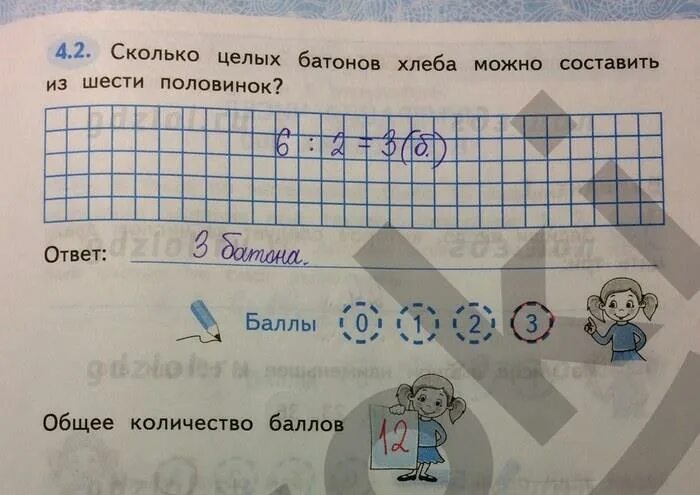 4.2. Сколько целых батонов хлеба можно составить
из шести половинок?
6 : 2 = 3 (б.)
Ответ: 3 батона.
Баллы 0 1 2 3
Общее количество баллов 12